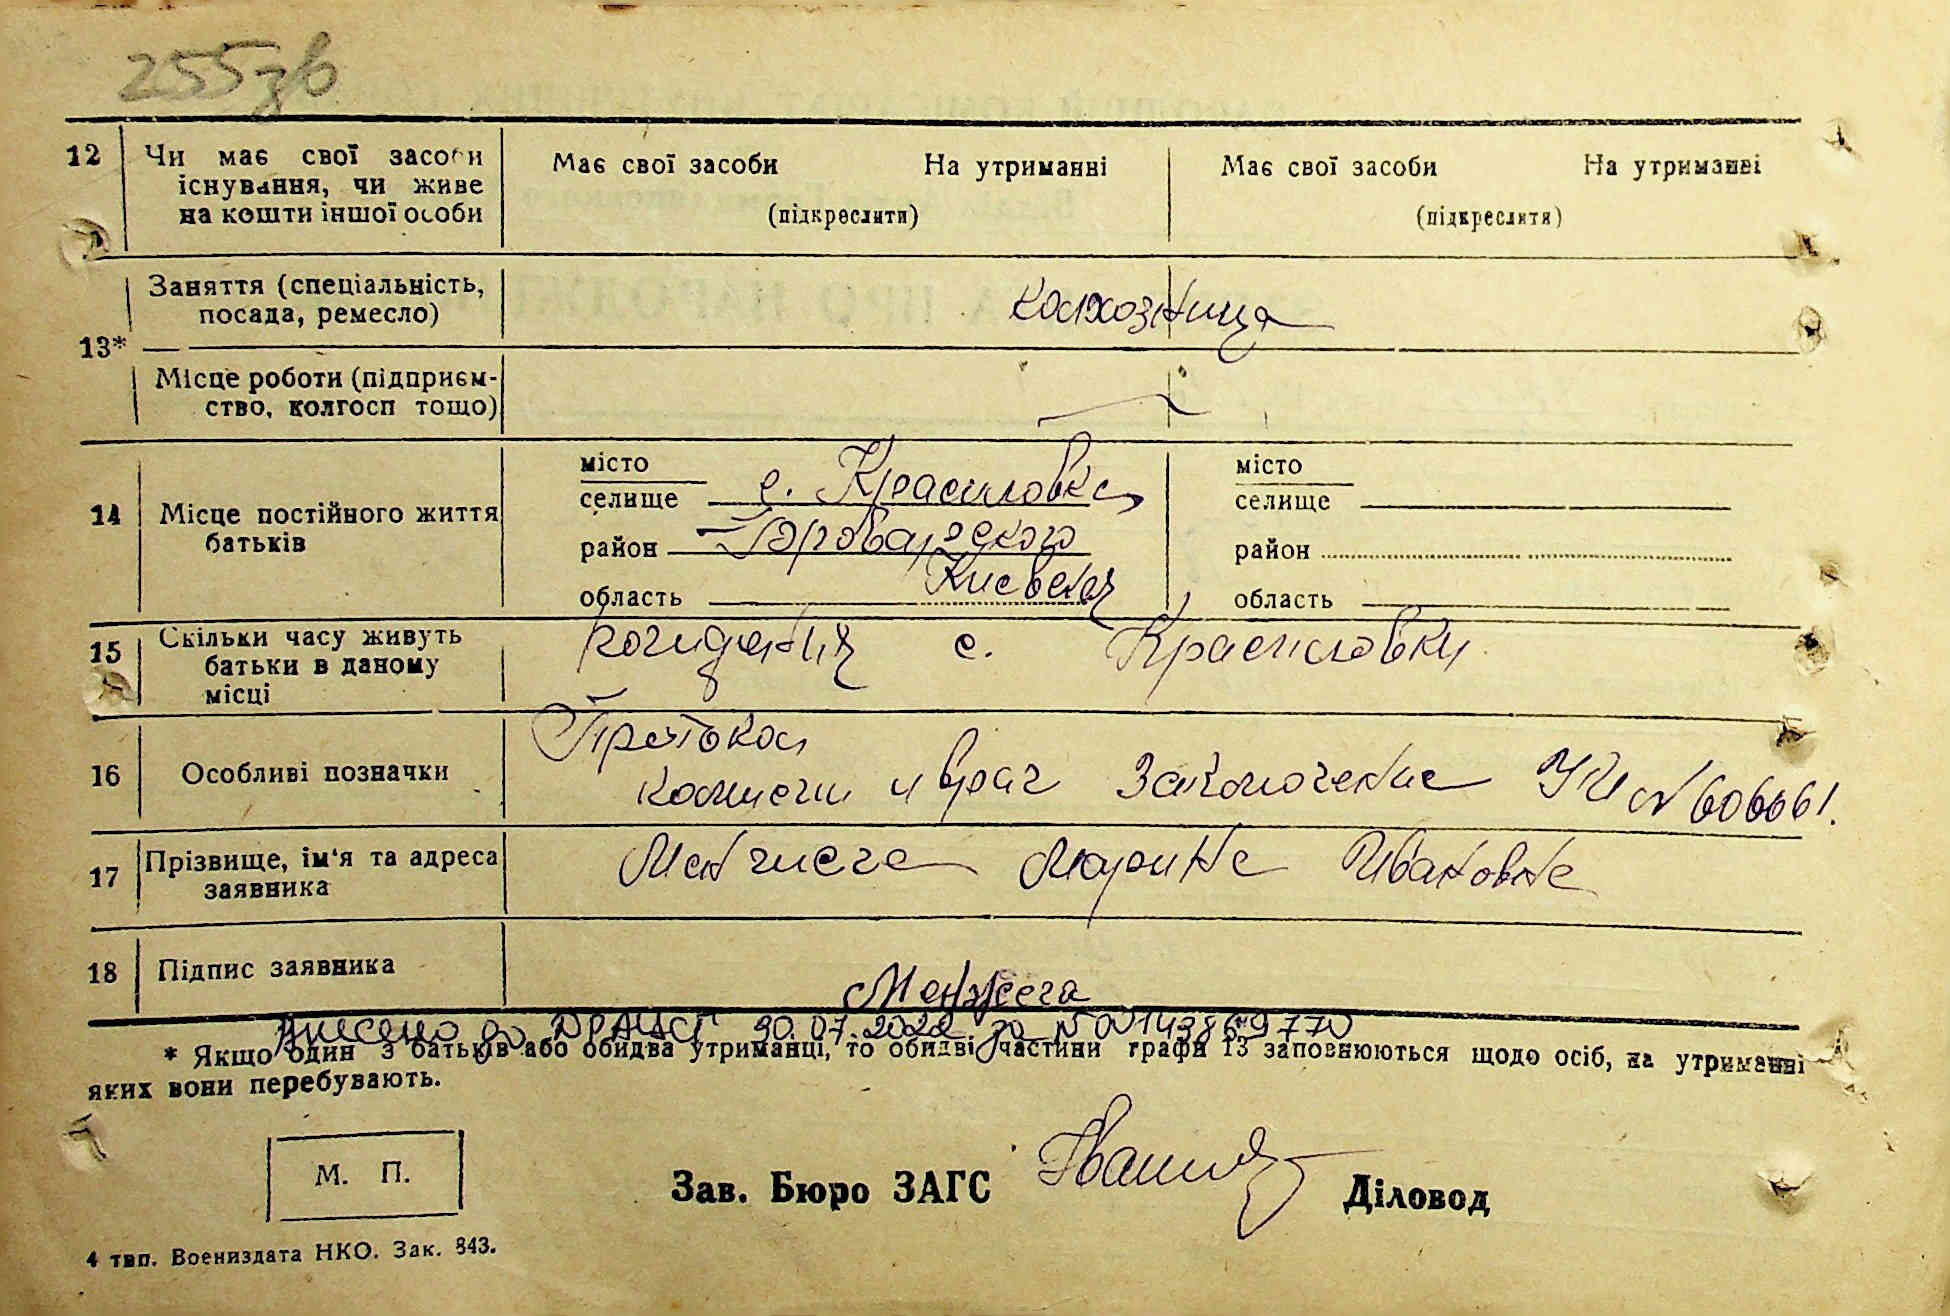 255зв
12 Чи має свої засоби існування, чи живе на кошти іншої особи
Має свої засоби На утриманні
(підкреслити)
Має свої засоби На утриманні
(підкреслити)
13* Заняття (спеціальність, посада, ремесло)
колхозница
Місце роботи (підприєм-
ство, колгосп тощо)
14 Місце постійного життя батьків
місто
селище с. Красиловка
район Броварского
область Киевская
місто
селище
район
область
15 Скільки часу живуть батьки в даному місці
с. Красиловки
16 Особливі позначки
Протокол
комисии и врач заключение № 606061.
17 Прізвище, ім‘я та адреса заявника
Марина Ивановна
18 Підпис заявника
Менжега
Внесено до ДРАЦСГ 30.07.2022 за №
* Якщо один з батьків або обидва утриманці, то обидві частини графи 13 заповнюються щодо осіб, на утриманні
яких вони перебувають.
М. П.
Зав. Бюро ЗАГС Діловод
4 тип. Воениздата НКО. Зак. 843.